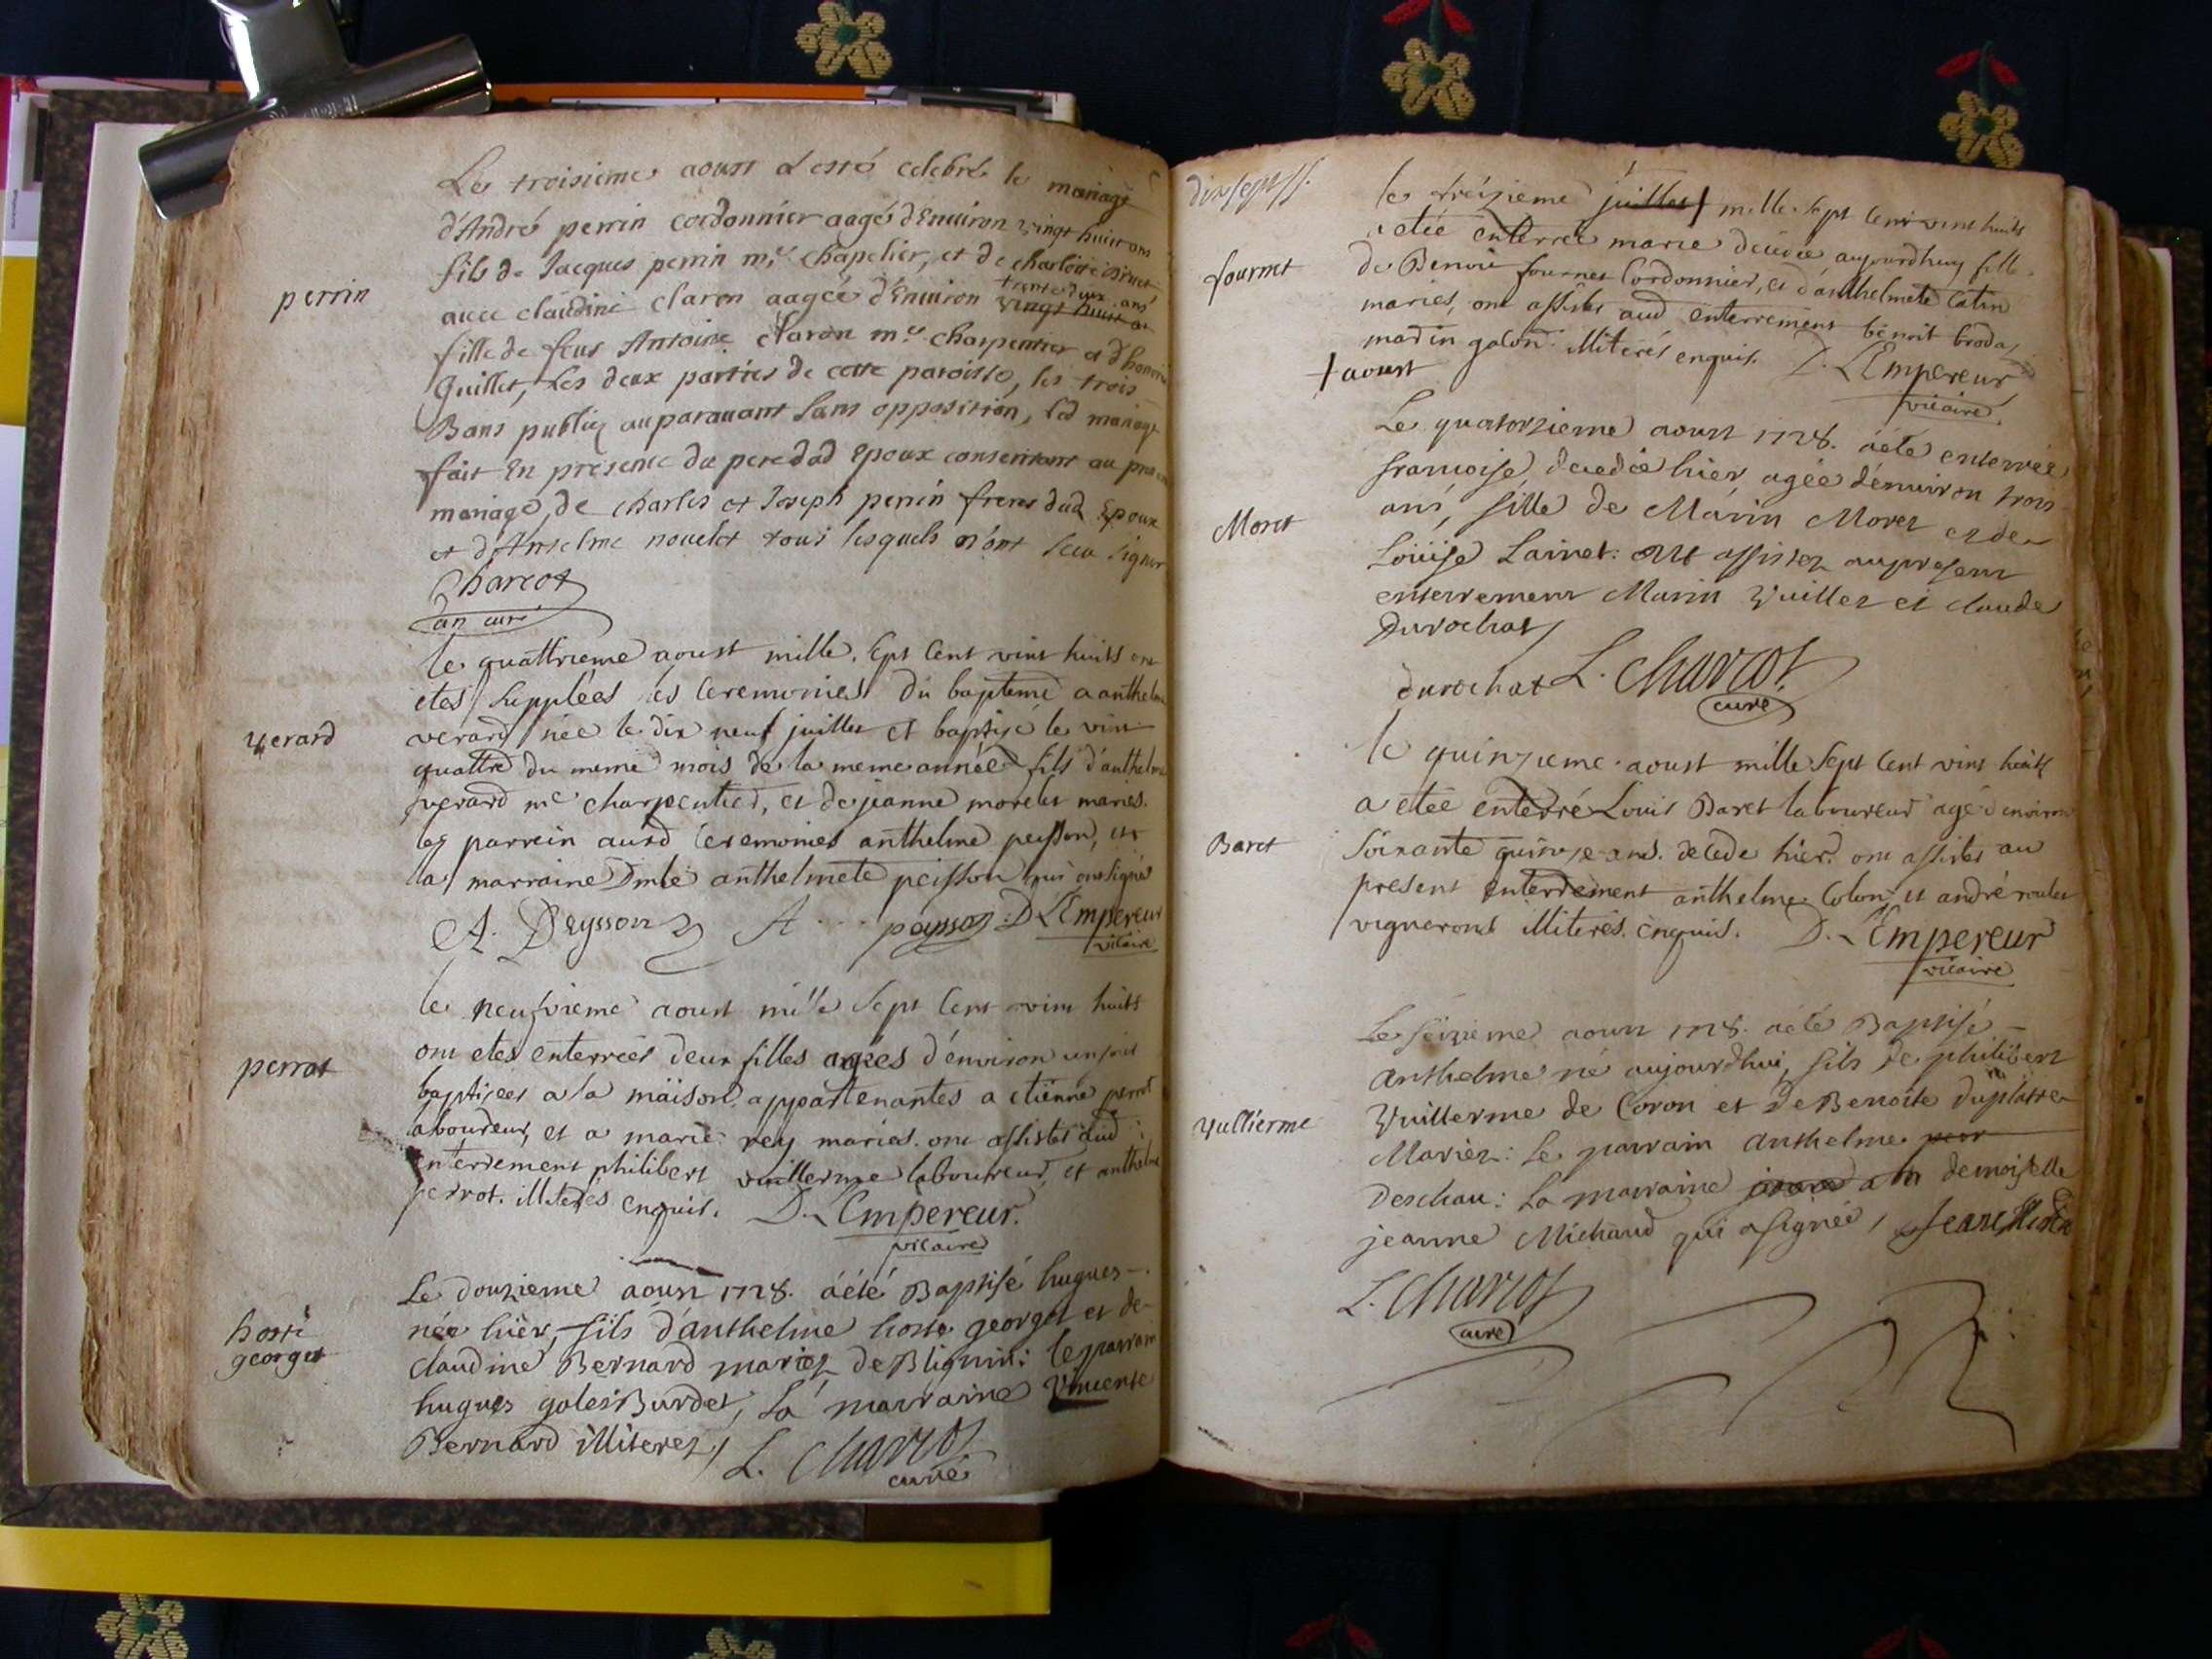 Le troisieme aoust a esté celebré le mariage
d'André perrin cordonnier aagé d'Enuiron vingt huit ans
fils de Jacques perrin m.e chapelier, et de charlotte
perrin
auec claudine claron aagée d'Enuiron trente deux ans vingt huit an
fille de feus Antoine claron m.e charpentier et d'
Guillet, Les deux parties de cette paroisse, les trois
Bans publiez auparauant sans opposition, led mariage
fait En presence du pere dud Epoux consentant au
mariage, de charles et Joseph perrin freres dud Epoux
et d'Anselme nouelet tous lesquels n'ont sceu signer
Charcot
an curé
le quattrieme aoust mille. sept cent vint huits ont
etes supplées les ceremonies du bapteme a anthelme
verard
verard née le dix neuf juillet et baptisé le vint
quattre du meme mois de la meme année fils d'anthelme
verard me charpentier, et de jeanne morelet maries.
les parrein ausd ceremonies anthelme peisson, et
la marraine Dmle anthelmete peisson qui ont signés
A. Peysson A peysson D. L'Empereur
vicaire
le neufvieme aoust mille sept cent vint huits
ont etes enterrées deux filles agées d'environ un jour
perrot
baptisees a la maison appartenantes a etienne perrot
laboureur, et a marie rey maries. ont assistes aud
enterrement philibert vuillerme laboureur, et anthelme
perrot. illiterés enquis. D. L'Empereur.
vicaire
Le douzieme aoust 1728. a été Baptisé hugues
hoste
georget
née hier, fils d'anthelme hoste georget et de
claudine Bernard mariez de Blignin: le parrain
hugues goles Burdet, La marraine Vincente
Bernard illiterez L. Charcot
curé
dix sept
le treizieme juillet mille sept cent vint huits
a etée enterrée marie decedée aujourdhuy fille
fournet
de Benoit fournet Cordonnier, et d'anthelmete Catin
maries, ont assistes aud enterrement benoit broda
madin galod. illiterés enquis. D. L'Empereur
aoust
vicaire
Le quatorzieme aoust 1728. a été enterrée
francoise decedée hier, agée d'enuiron trois
Moret
ans, fille de Marin Moret et de
Loüise Lainet: ont assistez au present
enterrement Marin Vuillet et claude
Durochat
durochat L. Charcot
curé
le quinzieme aoust mille sept cent vint huits
a etée enterré Louis Baret laboureur agé d'environ
Baret
soixante quinze ans. decede hier. ont assistes au
present enterrement anthelme Colon et andré roulet
vignerons illiterés enquis. D. L'Empereur
vicaire
Le seizieme aoust 1728. a été Baptisé
Anthelme né aujourdhui, fils de philibert
vullierme
Vuillerme de Coron et de Benoite duplatre
Mariez: Le parrain anthelme
Deschau: La marraine demoiselle
jeanne Michaud qui a signée
L. Charcot
curé